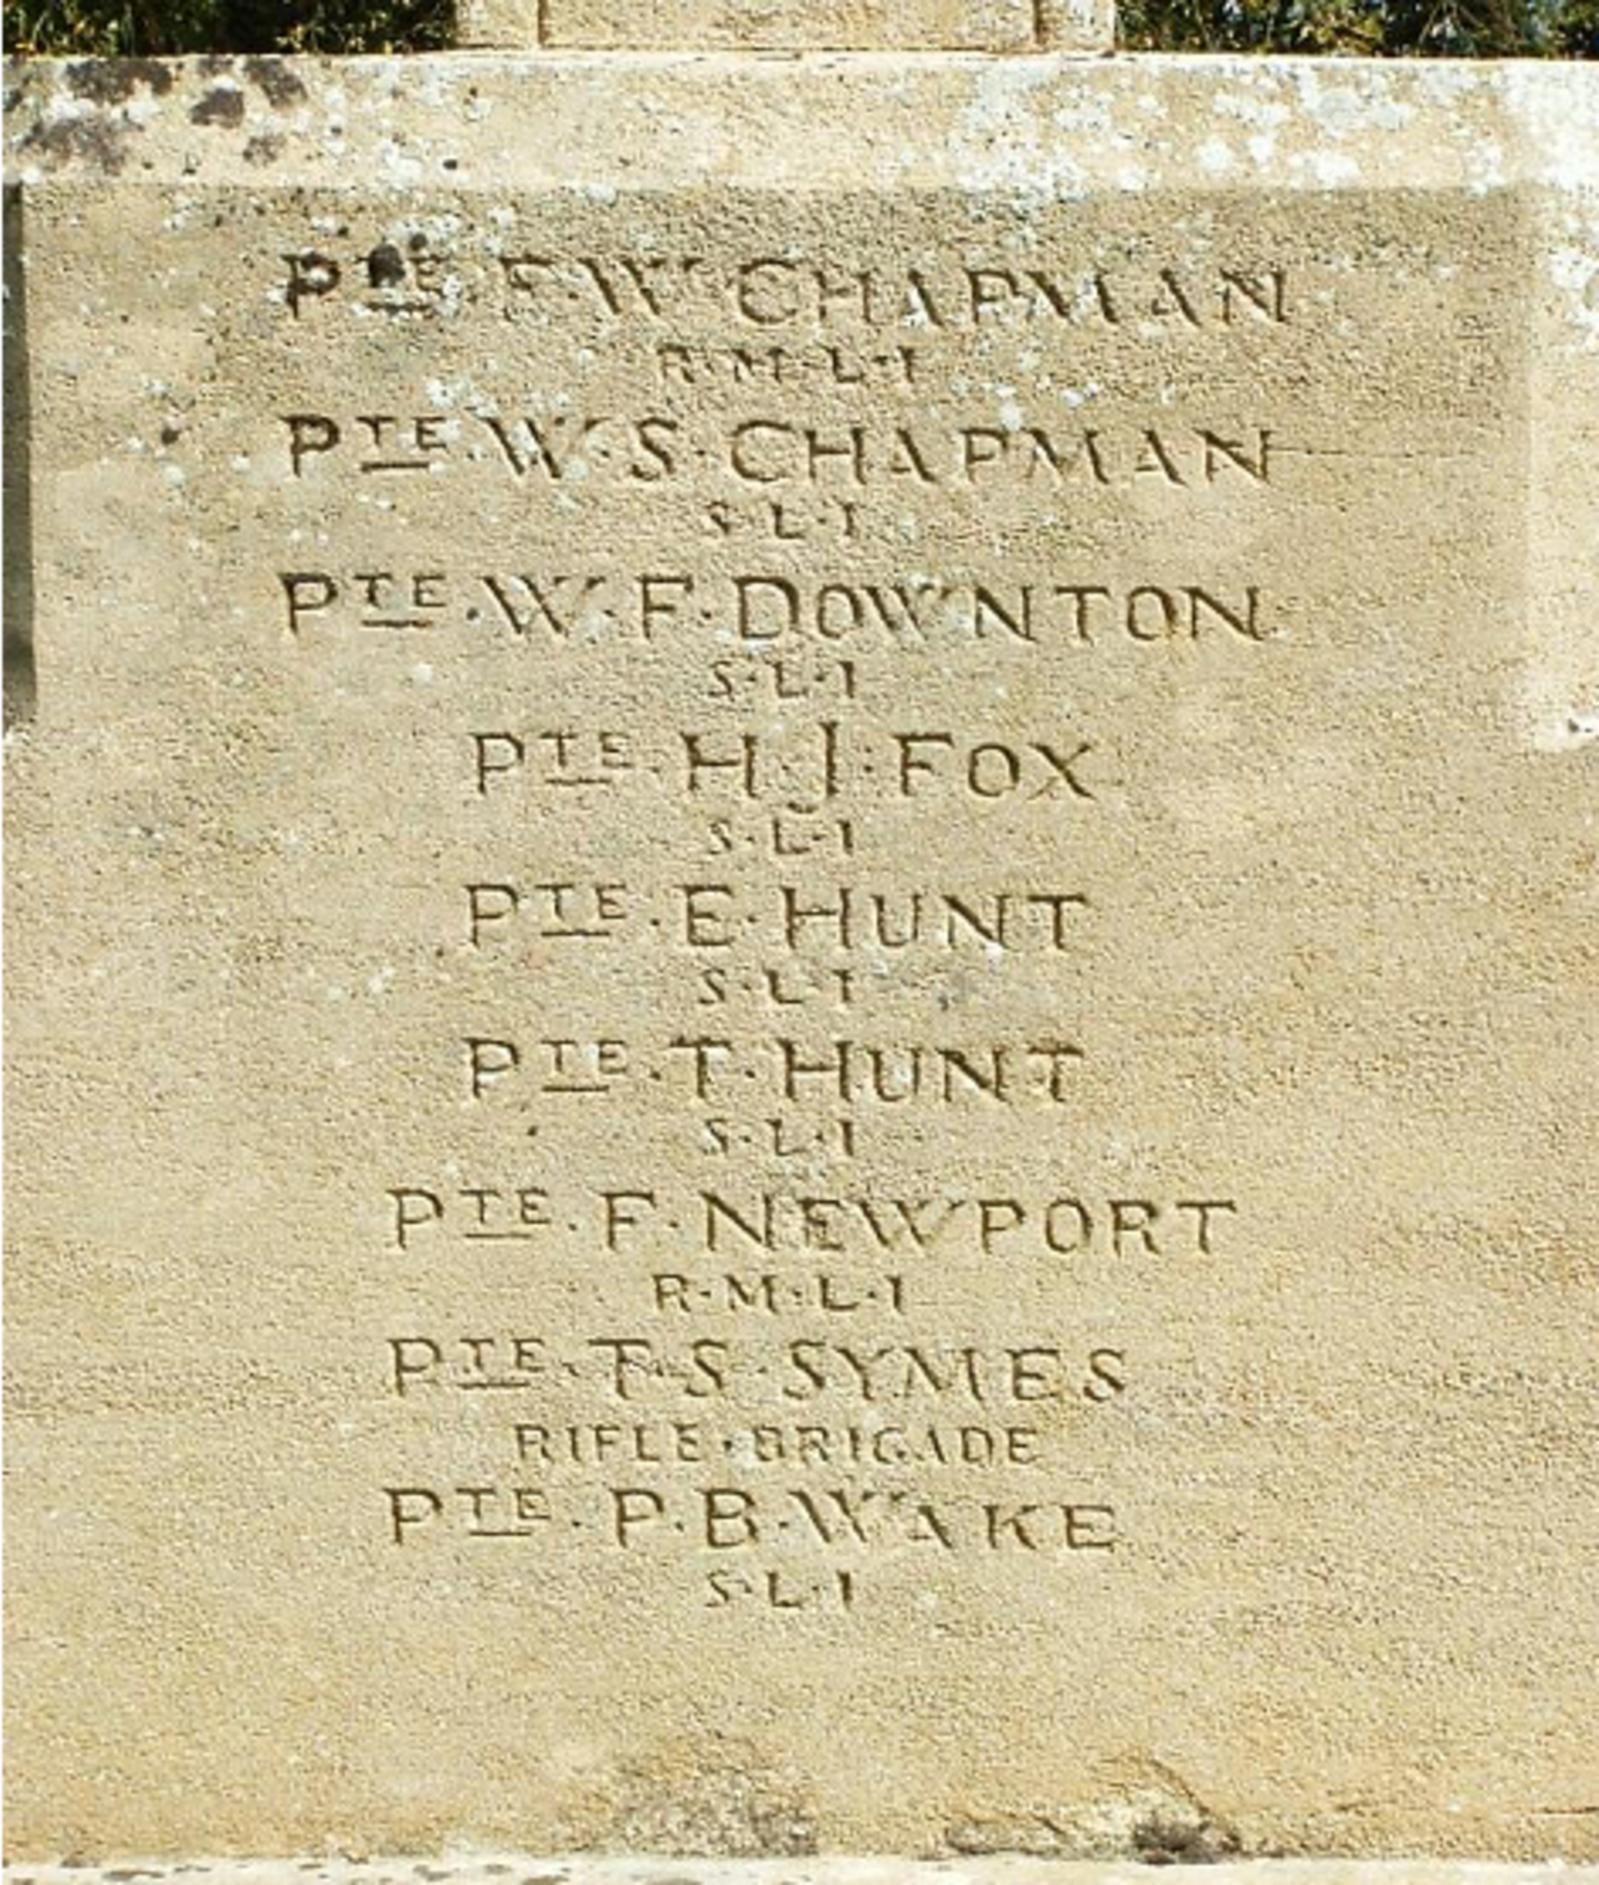 PTE·F·W·CHAPMAN
R·M·L·I
PTE·W·S·CHAPMAN
S·L·I
PTE·W·F·DOWNTON
S·L·I
PTE·H·J·FOX
S·L·I
PTE·E·HUNT
S·L·I
PTE·T·HUNT
S·L·I
PTE·F·NEWPORT
R·M·L·I
PTE·T·S·SYMES
RIFLE·BRIGADE
PTE·P·B·WAKE
S·L·I